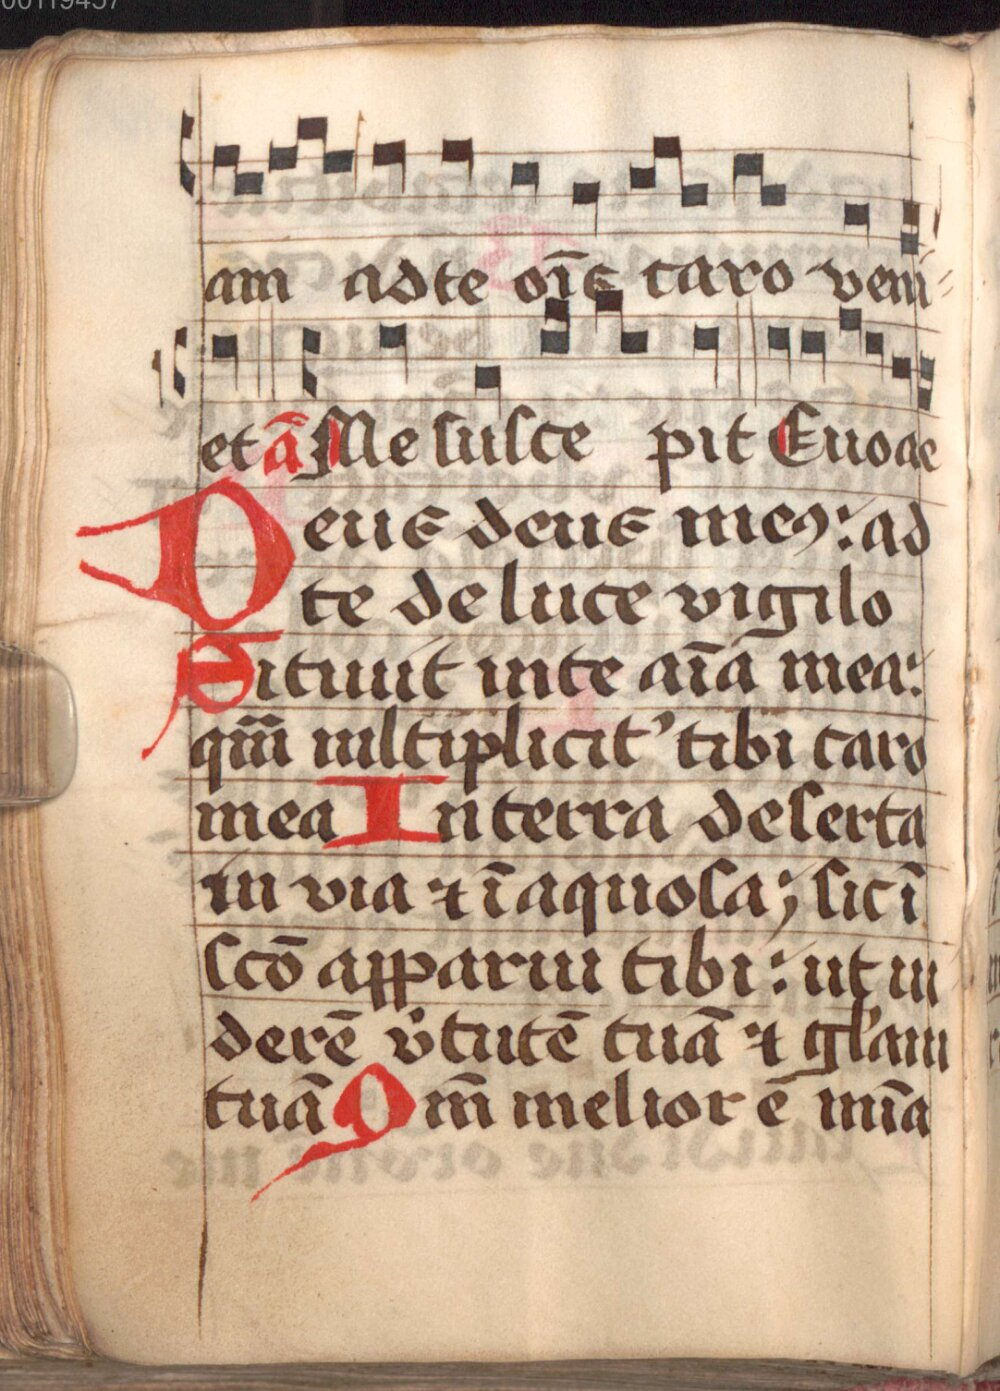 am ad te oīs caro veni-
et ā Me susce pit Euoae
Deus deus meꝯ: ad
te de luce vigilo
Sitiuit in te aīa mea:
qm̄ m̄ltiplicit᾿ tibi caro
mea In terra deserta
in via ⁊ ī aquosa; sic ī
scō apparui tibi: ut ui
derē v̓tutē tuā ⁊ gl̓am
tuā Qm̄ melior ē mīa